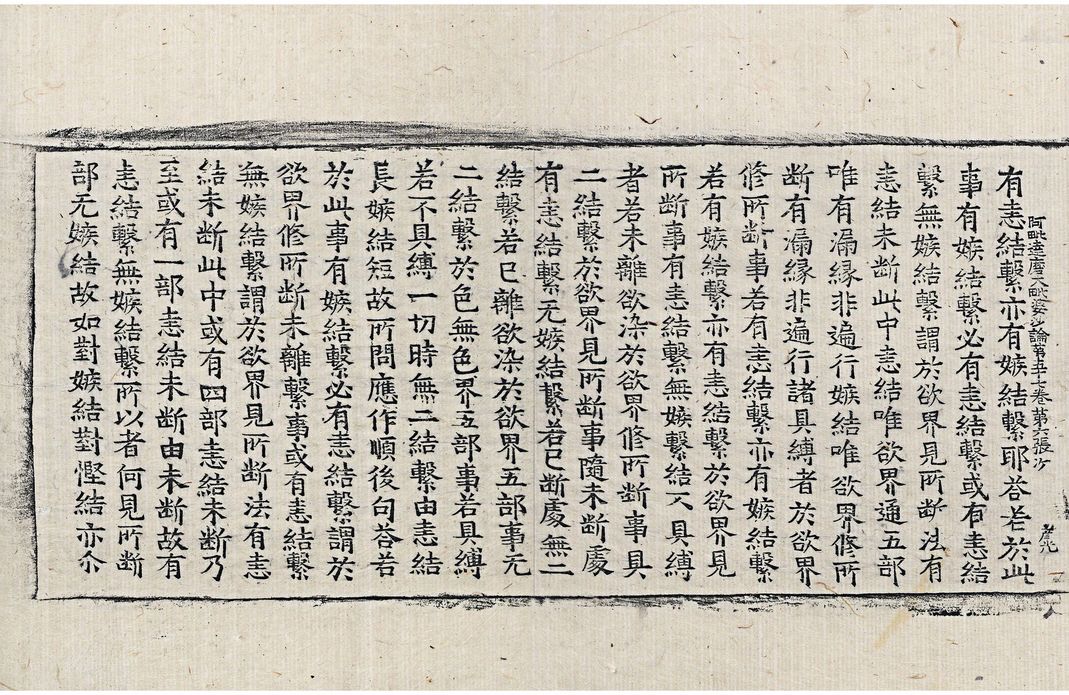 阿毗達磨大毗婆沙論第五十七卷 第六張 沙
有恚結繫亦有嫉結繫耶荅若於此
事有嫉結繫必有恚結繫或有恚結
繫無嫉結繫謂於欲界見所断法有
恚結未断此中恚結唯欲界通五部
唯有漏緣非遍行嫉結唯欲界修所
断有漏緣非遍行諸具縛者於欲界
修所断事若有恚結繫亦有嫉結繫
若有嫉結繫亦有恚結繫於欲界見
所断事有恚結繫無嫉繫結不具縛
者若未離欲染於欲界修所断事具
二結繫於欲界見所断事隨未断處
有恚結繫无嫉結繫若已断處無二
結繫若已離欲染於欲界五部事无
二結繫於色無色界五部事若具縛
若不具縛一切時無二結繫由恚結
長嫉結短故所問應作順後句荅若
於此事有嫉結繫必有恚結繫謂於
欲界修所断未離繫事或有恚結繫
無嫉結繫謂於欲界見所断法有恚
結未断此中或有四部恚結未断乃
至或有一部恚結未断由未断故有
恚結繫無嫉結繫所以者何見所断
部无嫉結故如對嫉結對慳結亦尒